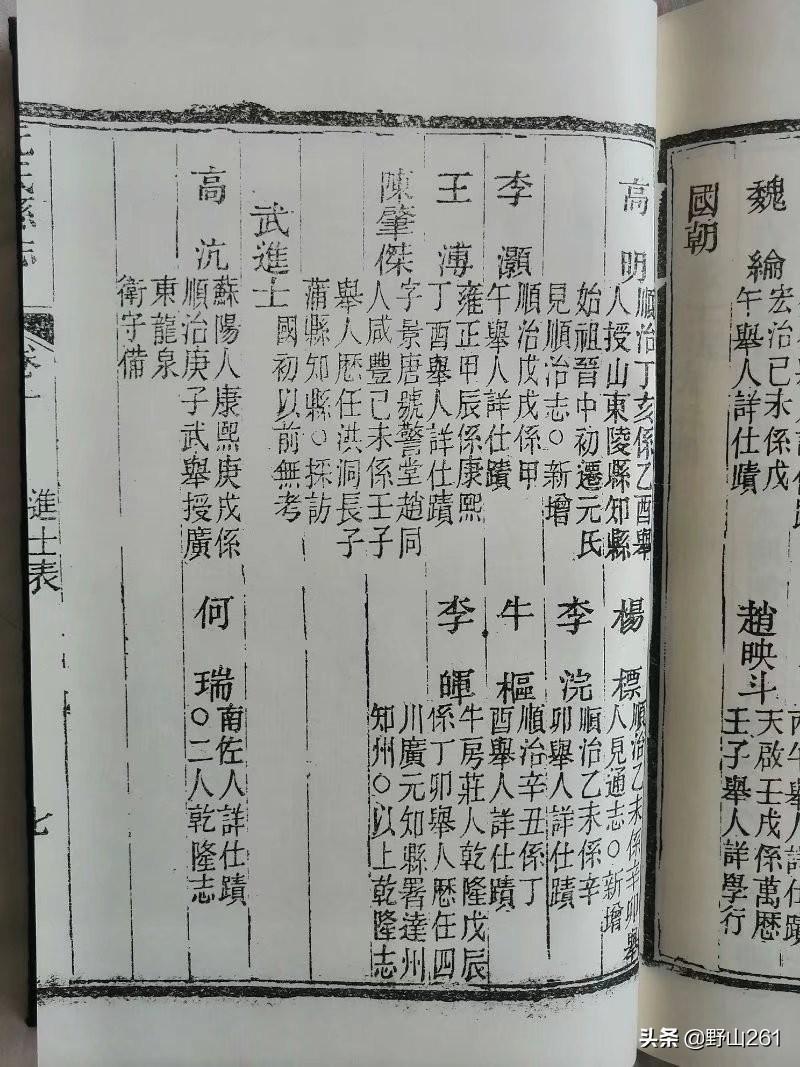 魏綸
宏治己未係戊
午舉人詳仕蹟
趙映斗
天啟壬戌係萬歷
壬子舉人詳學行
國朝
高明
順治丁亥係乙酉舉
人授山東陵縣知縣
始祖晉中初遷元氏
見順治志○新增
楊標
順治乙未係辛卯舉
人見通志○新增
李浣
順治乙未係辛
卯舉人詳仕蹟
李灝
順治戊戌係甲
午舉人詳仕蹟
牛樞
順治辛丑係丁
酉舉人詳仕蹟
王溥
雍正甲辰係康熙
丁酉舉人詳仕蹟
李暉
牛房莊人乾隆戊辰
係丁卯舉人歷任四
川廣元知縣署達州
知州○以上乾隆志
陳肇傑
字景唐號警堂趙同
人咸豐己未係壬子
舉人歷任洪洞長子
蒲縣知縣○採訪
武進士
國初以前無考
高沆
蘇陽人康熙庚戌係
順治庚子武舉授廣
東龍泉
衛守備
何瑞
南佐人詳仕蹟
○二人乾隆志
進士表
七
头条 @野山261